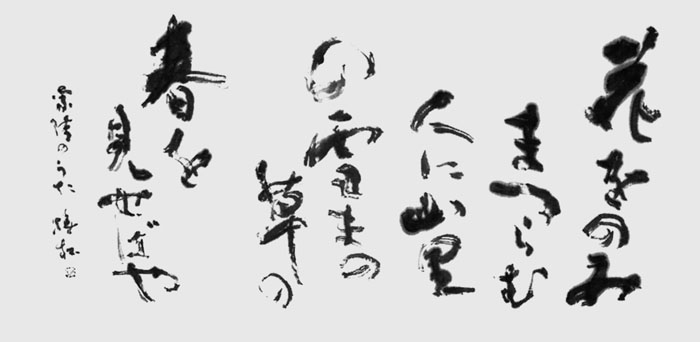 花をのみ
まつらむ
人に山里
の雪まの
草の
春を
見せばや
家隆のうた